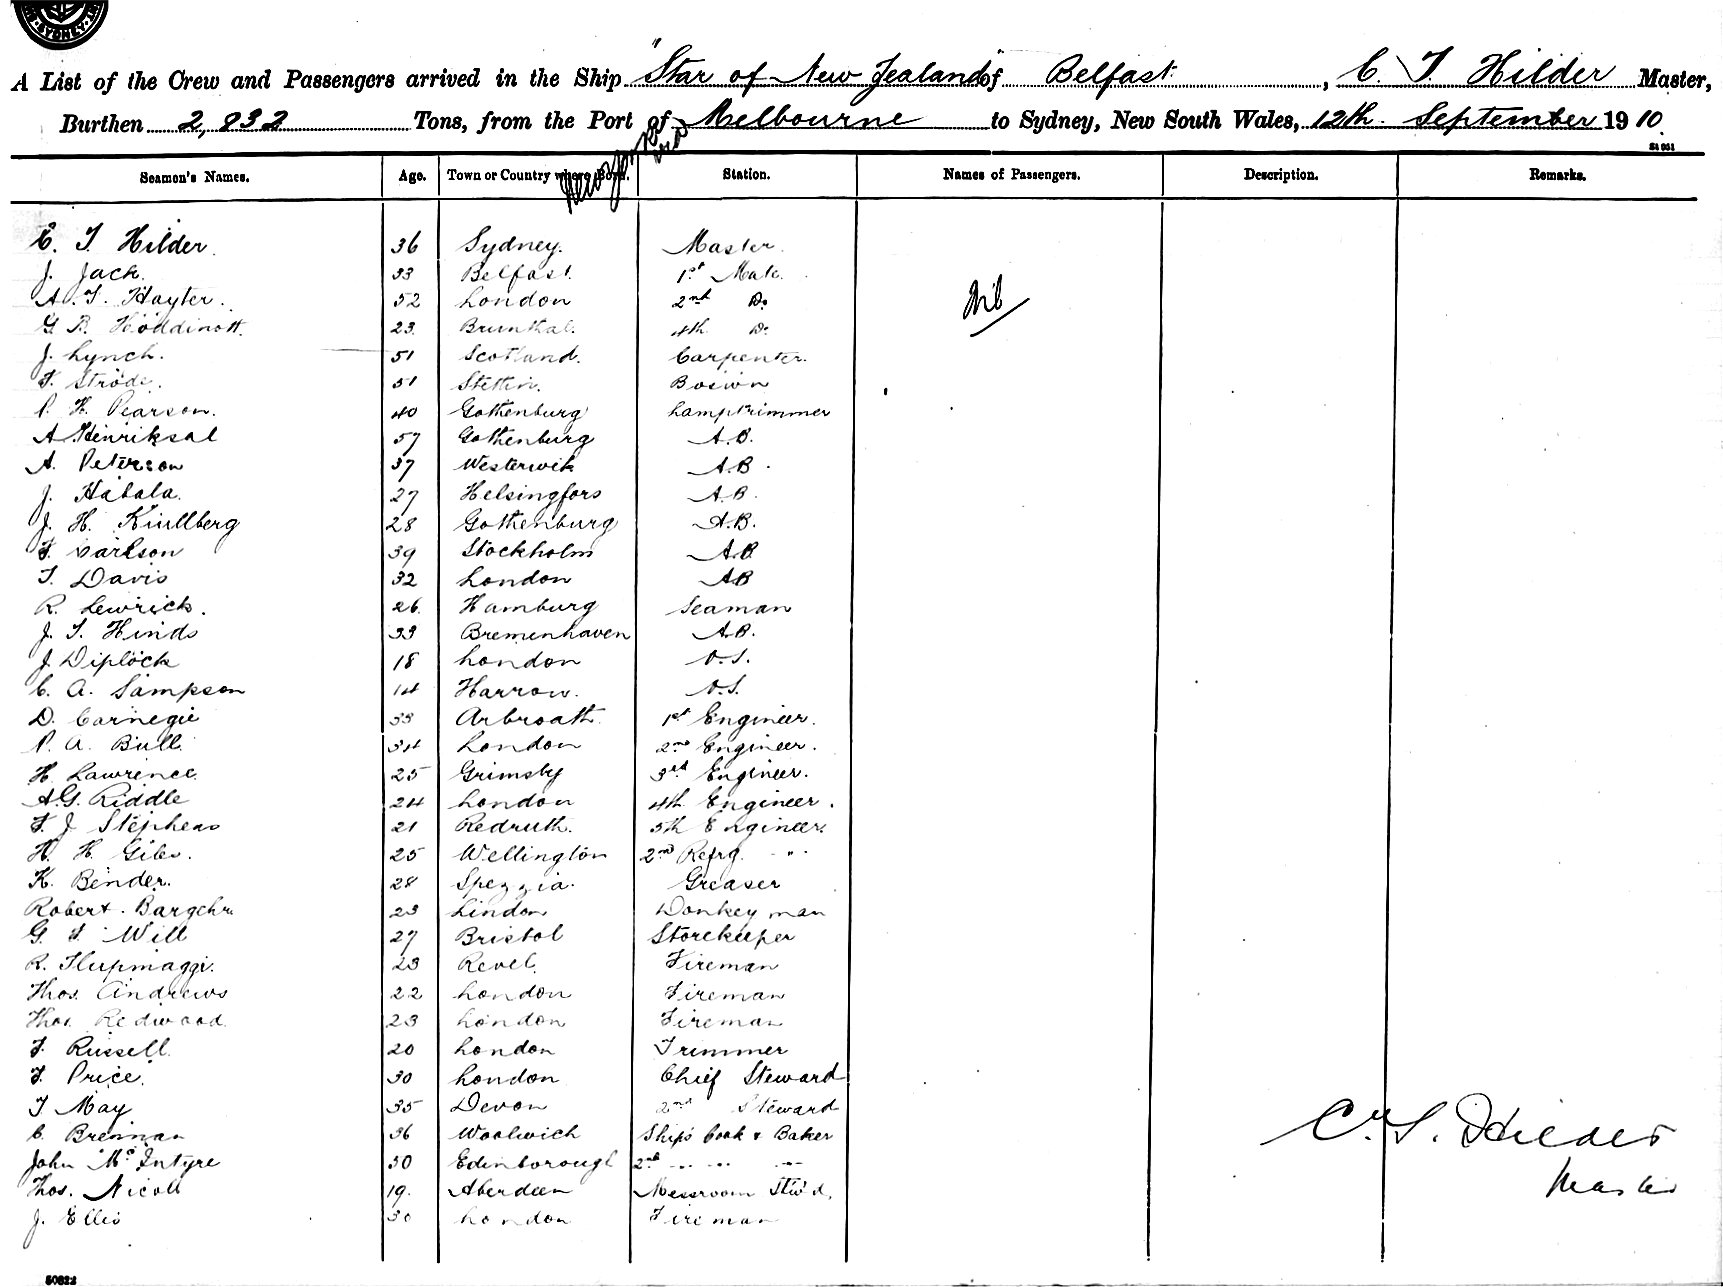 SYDNEY
A List of the Crew and Passengers arrived in the Ship "Star of New Zealand" of Belfast, C. T. Hilder Master,
Burthen 2,832 Tons, from the Port of Melbourne to Sydney, New South Wales, 12th September 1910.
New York via
Seamen's Names. Age. Town or Country where Born. Station. Names of Passengers. Description. Remarks.
C. T. Hilder. 36 Sydney. Master.
J. Jack. 33 Belfast. 1st Mate.
A. T. Hayter. 52 London 2nd Do.
G. B. Hoddinott. 23. 4th Do.
Nil
J. Lynch. 51 Scotland. Carpenter.
F. Strode. 51 Stettin. Bosiwn
P. H. Pearson. 40 Gothenburg Lamptrimmer
A. Henriksal 57 Gothenburg A.B.
A. Peterson 37 Westerwik A.B.
J. Habala. 27 Helsingfors A.B.
J. H. Kiullberg 28 Gothenburg A.B.
F. Carlson 39 Stockholm A.B.
T. Davis 32 London AB
R. Lewrick. 26. Hamburg Seaman
J. T. Hinds 33 Bremenhaven A.B.
J. Diplock 18 London O.S.
C. A. Sampson 14 Harrow. O.S.
D. Carnegie 33 Arbroath. 1st Engineer.
P. A. Bull. 34 London 2nd Engineer.
H. Lawrence. 25 Grimsby 3rd Engineer.
A.G. Riddle 24 London 4th Engineer.
F. J Stephens 21 Redruth. 5th Engineer.
H. H. Giles. 25 Wellington 2nd Refrg. " "
K. Binder. 28 Spezzia. Greaser
Robert 23 Donkey man
G. F. Will 27 Bristol Storekeeper
R. 23 Revel. Fireman
Thos. Andrews 22 London Fireman
Thos. Redwood. 23 London Fireman
F. Russell. 20 London Trimmer
F. Price. 30 London Chief Steward
T May 35 Devon 2nd Steward
C. Brennan 36 Woolwich Ship's Cook & Baker
John McIntyre 30 Edinborough 2nd " " "
Thos. Nicoll 19. Aberdeen Messroom Stw'd.
J. Ellis 30 London Fireman
C. T. Hilder
Master
50622